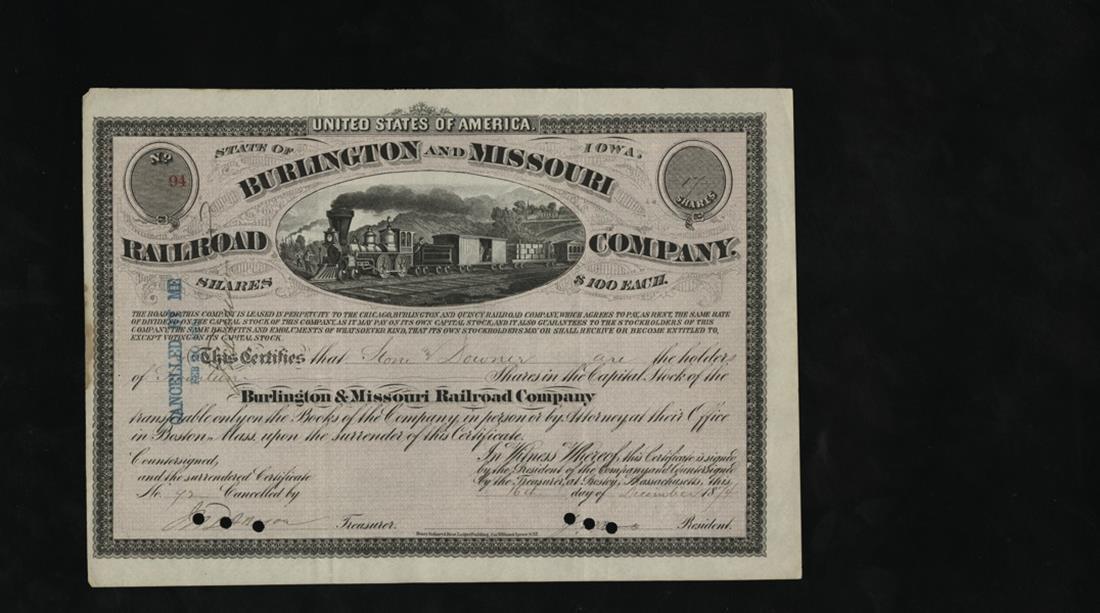 UNITED STATES OF AMERICA.
STATE OF IOWA,
No. 94
BURLINGTON AND MISSOURI
17 SHARES
RAILROAD COMPANY.
SHARES $100 EACH.
THE ROAD OF THIS COMPANY IS LEASED IN PERPETUITY TO THE CHICAGO, BURLINGTON AND QUINCY RAILROAD COMPANY, WHICH AGREES TO PAY, AS RENT, THE SAME RATE
OF DIVIDEND ON THE CAPITAL STOCK OF THIS COMPANY, AS IT MAY PAY ON ITS OWN CAPITAL STOCK, AND IT ALSO GUARANTEES TO THE STOCKHOLDERS OF THIS
COMPANY, THE SAME BENEFITS AND EMOLUMENTS OF WHATSOEVER KIND, THAT ITS OWN STOCKHOLDERS MAY OR SHALL RECEIVE OR BECOME ENTITLED TO,
EXCEPT VOTING ON ITS CAPITAL STOCK.
CANCELLED BY ME
FEB 20
This Certifies that Stone & Downer are the holders
of Seventeen Shares in the Capital Stock of the
Burlington & Missouri Railroad Company
transferable only on the Books of the Company, in person or by Attorney, at their Office
in Boston, Mass. upon the surrender of this Certificate.
In Witness Whereof, this Certificate is signed
by the President of the Company and Countersigned
by the Treasurer, at Boston, Massachusetts, this
16th day of December 1874
Countersigned,
and the surrendered Certificate
No. 92 Cancelled by
Treasurer.
President.